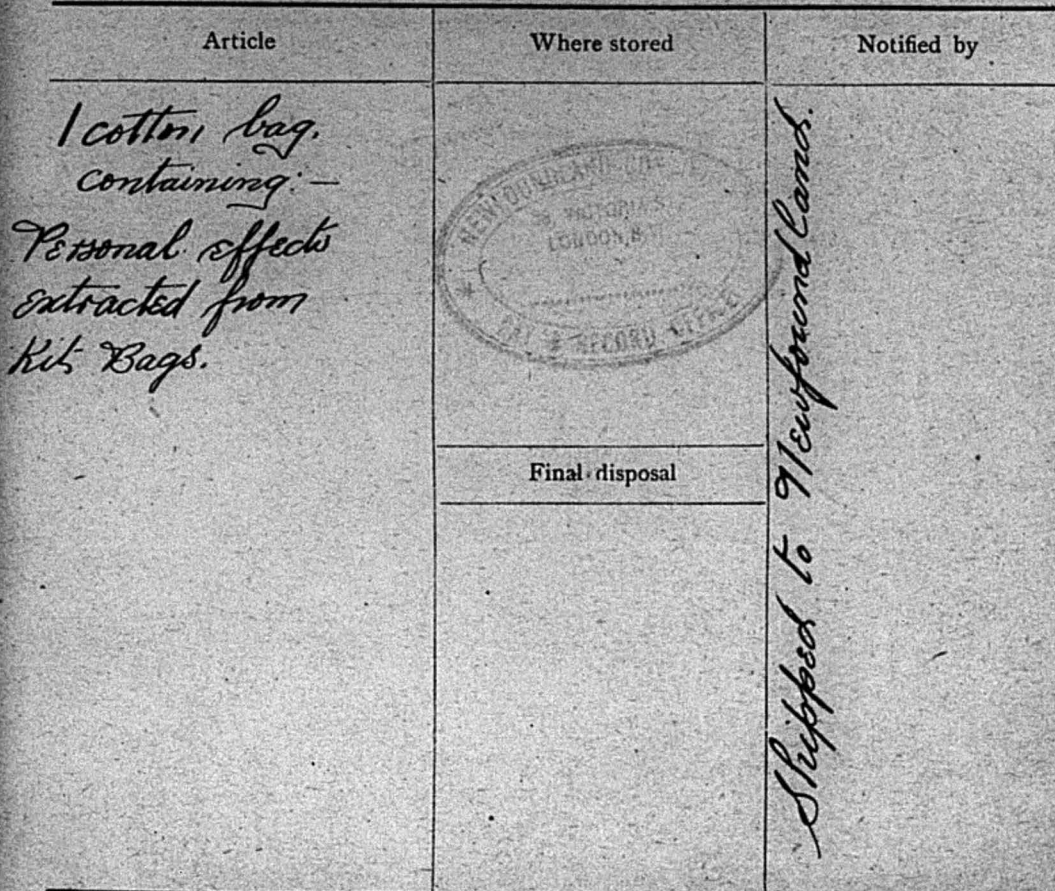 Article
Where stored
Notified by
1 cotton bag.
containing:—
Personal effects
extracted from
Kit Bags.
NEWFOUNDLAND
VICTORIA S
LONDON, S.W.
PAY & RECORD OFFICE
Final disposal
Shipped to Newfoundland.